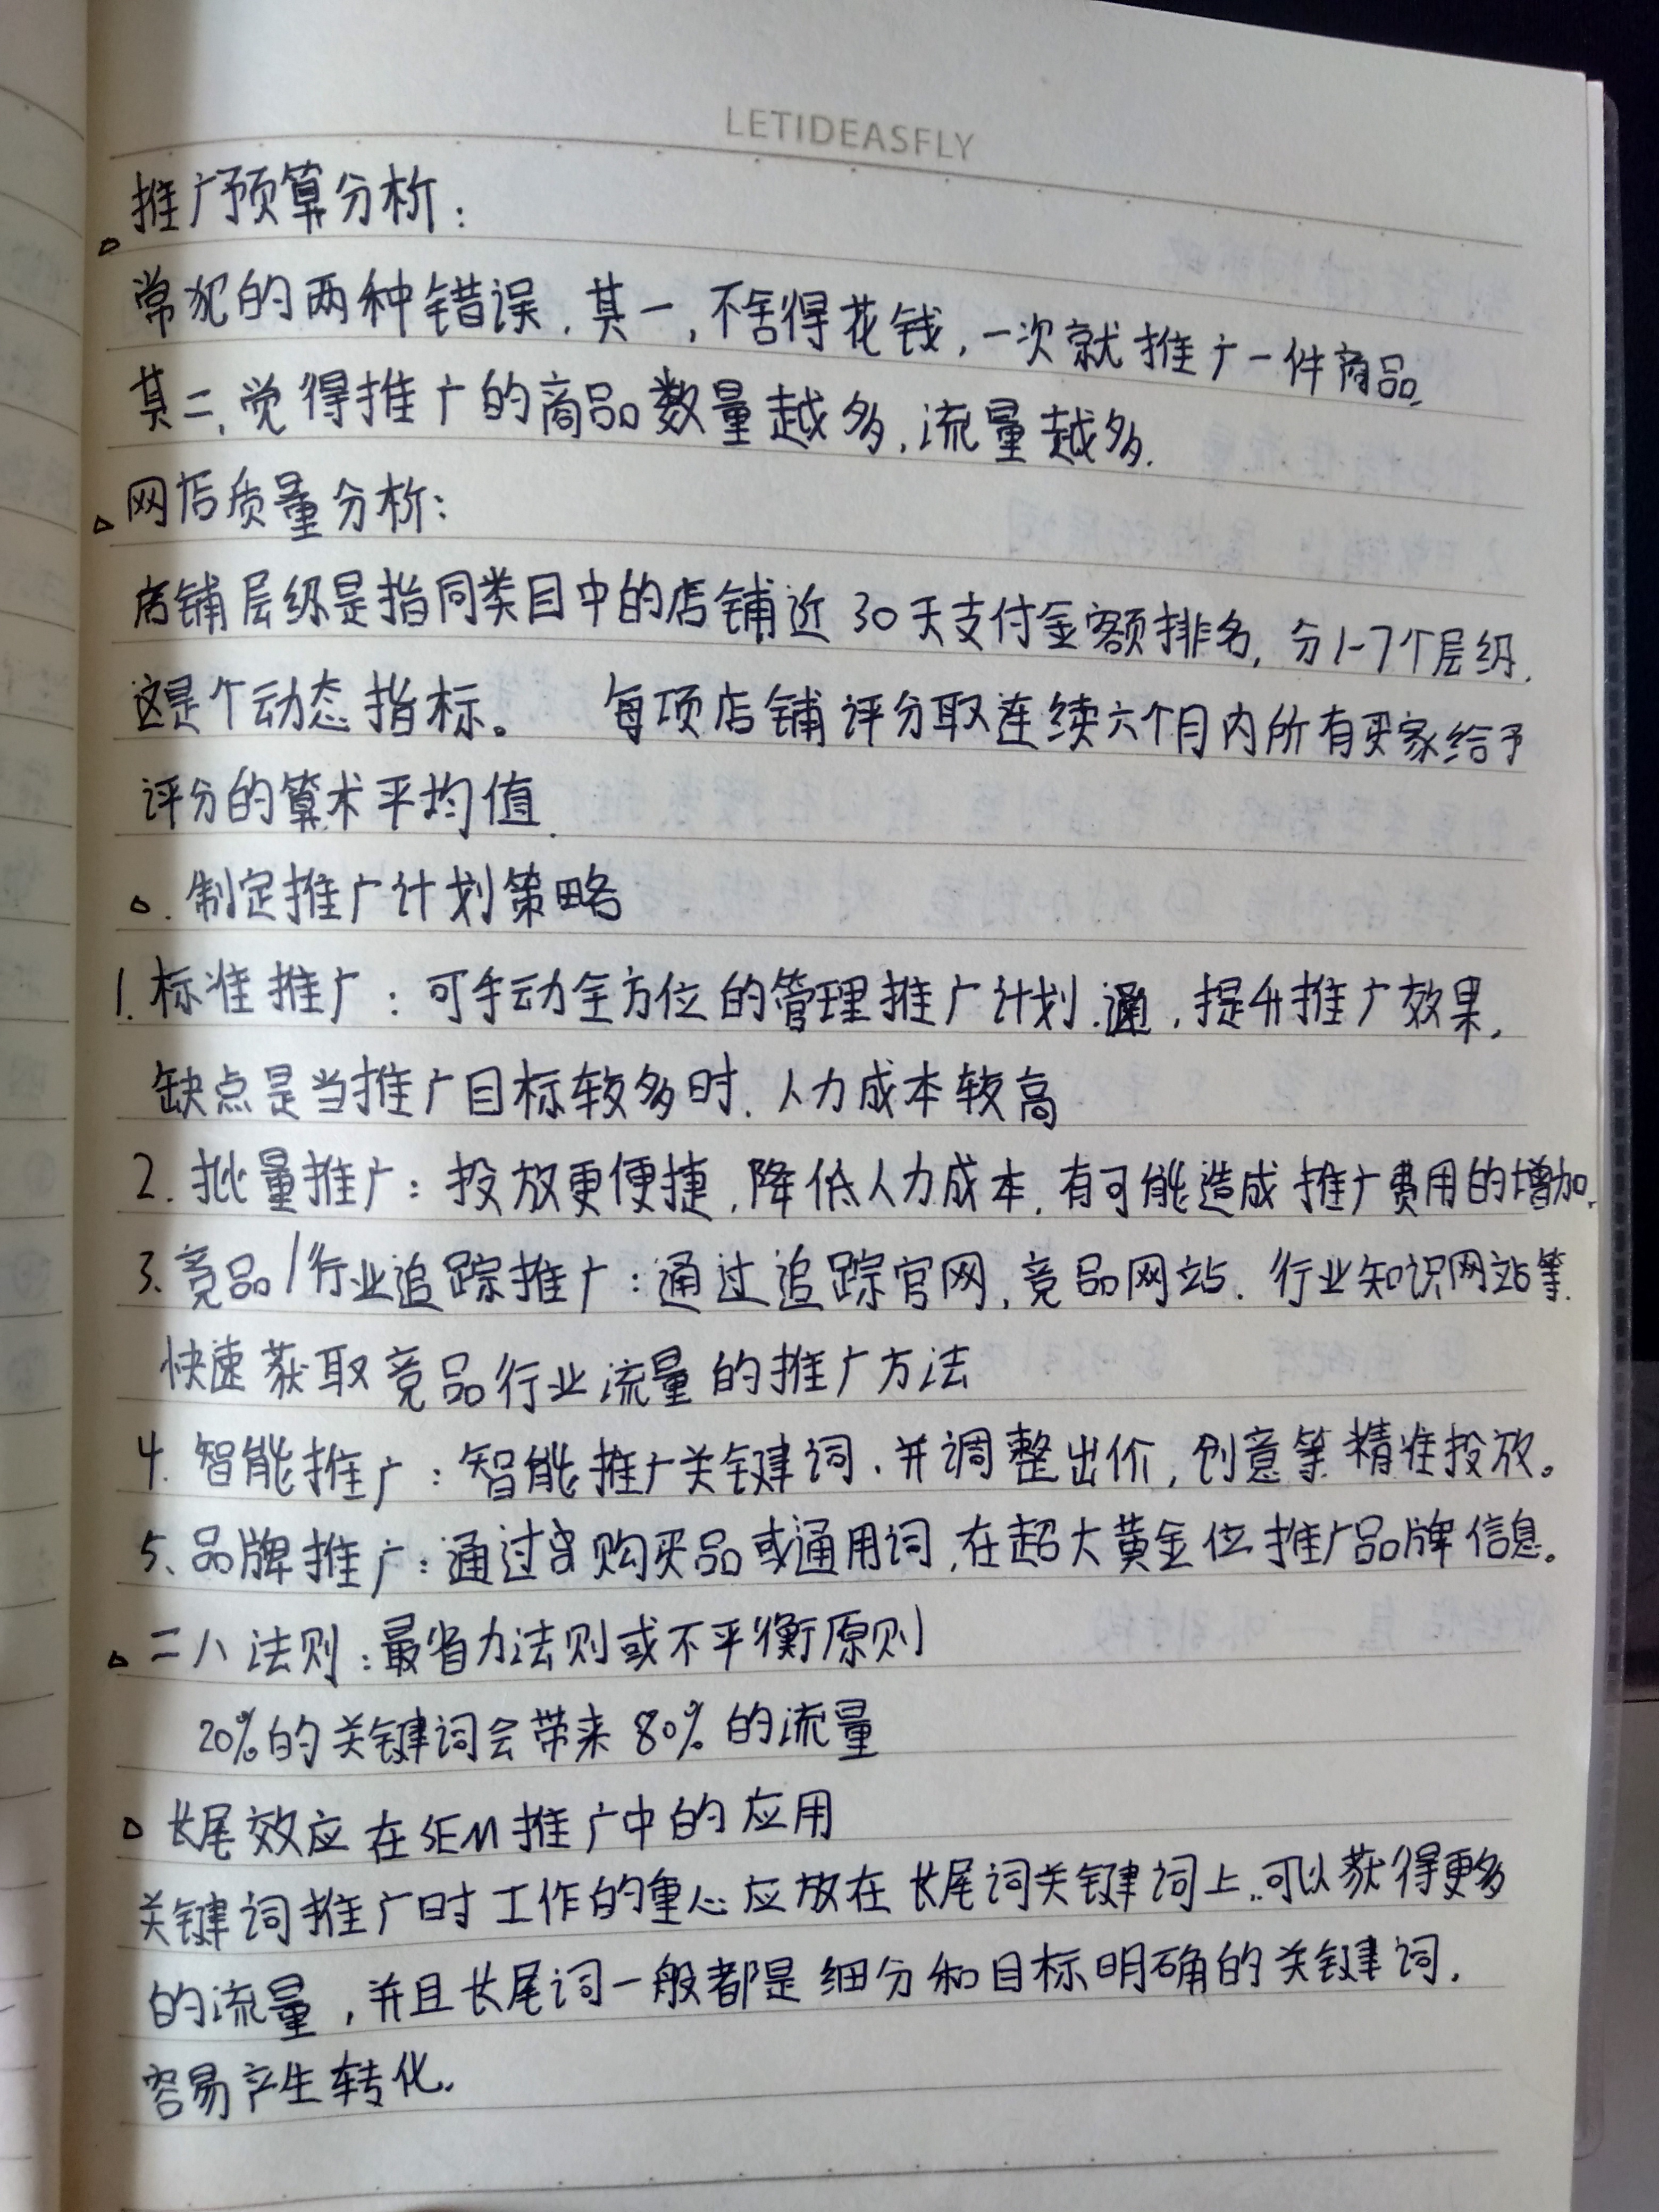 LETIDEASFLY
推广预算分析：
常犯的两种错误，其一，不舍得花钱，一次就推广一件商品，
其二，觉得推广的商品数量越多，流量越多.
网店质量分析：
店铺层级是指同类目中的店铺近30天支付金额排名，分1-7个层级，
这是个动态指标。 每项店铺评分取连续六个月内所有买家给予
评分的算术平均值.
制定推广计划策略
1.标准推广：可手动全方位的管理推广计划.通，提升推广效果，
缺点是当推广目标较多时，人力成本较高
2.批量推广：投放更便捷，降低人力成本，有可能造成推广费用的增加.
3.竞品/行业追踪推广：通过追踪官网，竞品网站，行业知识网站等.
快速获取竞品行业流量的推广方法
4.智能推广：智能推广关键词，并调整出价，创意等精准投放。
5、品牌推广：通过购买品或通用词，在超大黄金位推广品牌信息。
二八法则：最省力法则或不平衡原则
20%的关键词会带来80%的流量
长尾效应在SEM推广中的应用
关键词推广时工作的重心应放在长尾词关键词上..可以获得更多
的流量，并且长尾词一般都是细分和目标明确的关键词，
容易产生转化.